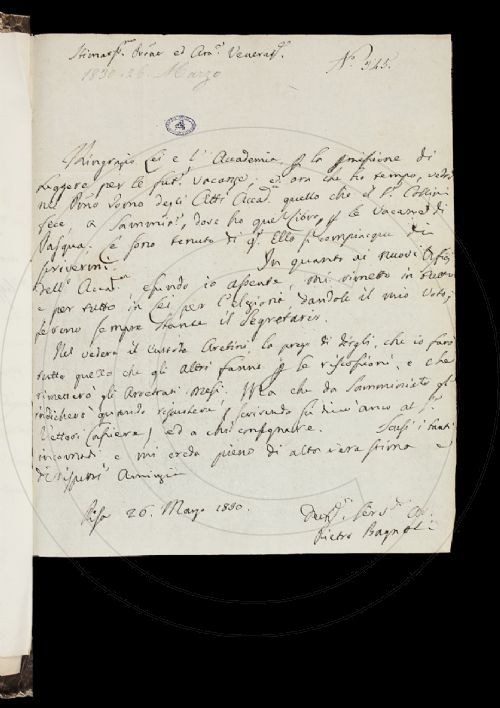 N.° 345.
1830. 26. Marzo
Ringrazio Lei e l'Accademia per la missione di
leggere per le fut.e vacanze. ed ora che ho tempo, vedrò
nel Primo Tomo degli Atti Accad.i quello che il Sr.
fece, a Samminiato, dove ho quel Libro, per le Vacanze di
Pasqua. e sono tenuto di q.to Ella si compiacque di
scrivermi. In quanto ai nuovi Ufizi
dell'Accad.a essendo io assente, mi rimetto in tutto
e per tutto in Lei per l'elezioni, dandole il mio Voto,
sempre stante il Segretario.
Nel vedere il Custode Aretini la prego di dirgli, che io farò
tutto quello che gli altri fanno per le riscossioni, e che
rimetterò gli Arretrati Mesi. Ma che da Samminiato gl'
indicherò quando, scrivendo anco al Sr.
Vettori Cassiere, ed a chi consegnare. Scusi i tanti
incomodi e mi creda pieno di alta vera stima e
Amicizia
Pisa 26. Marzo 1830.
Pietro Bagnoli